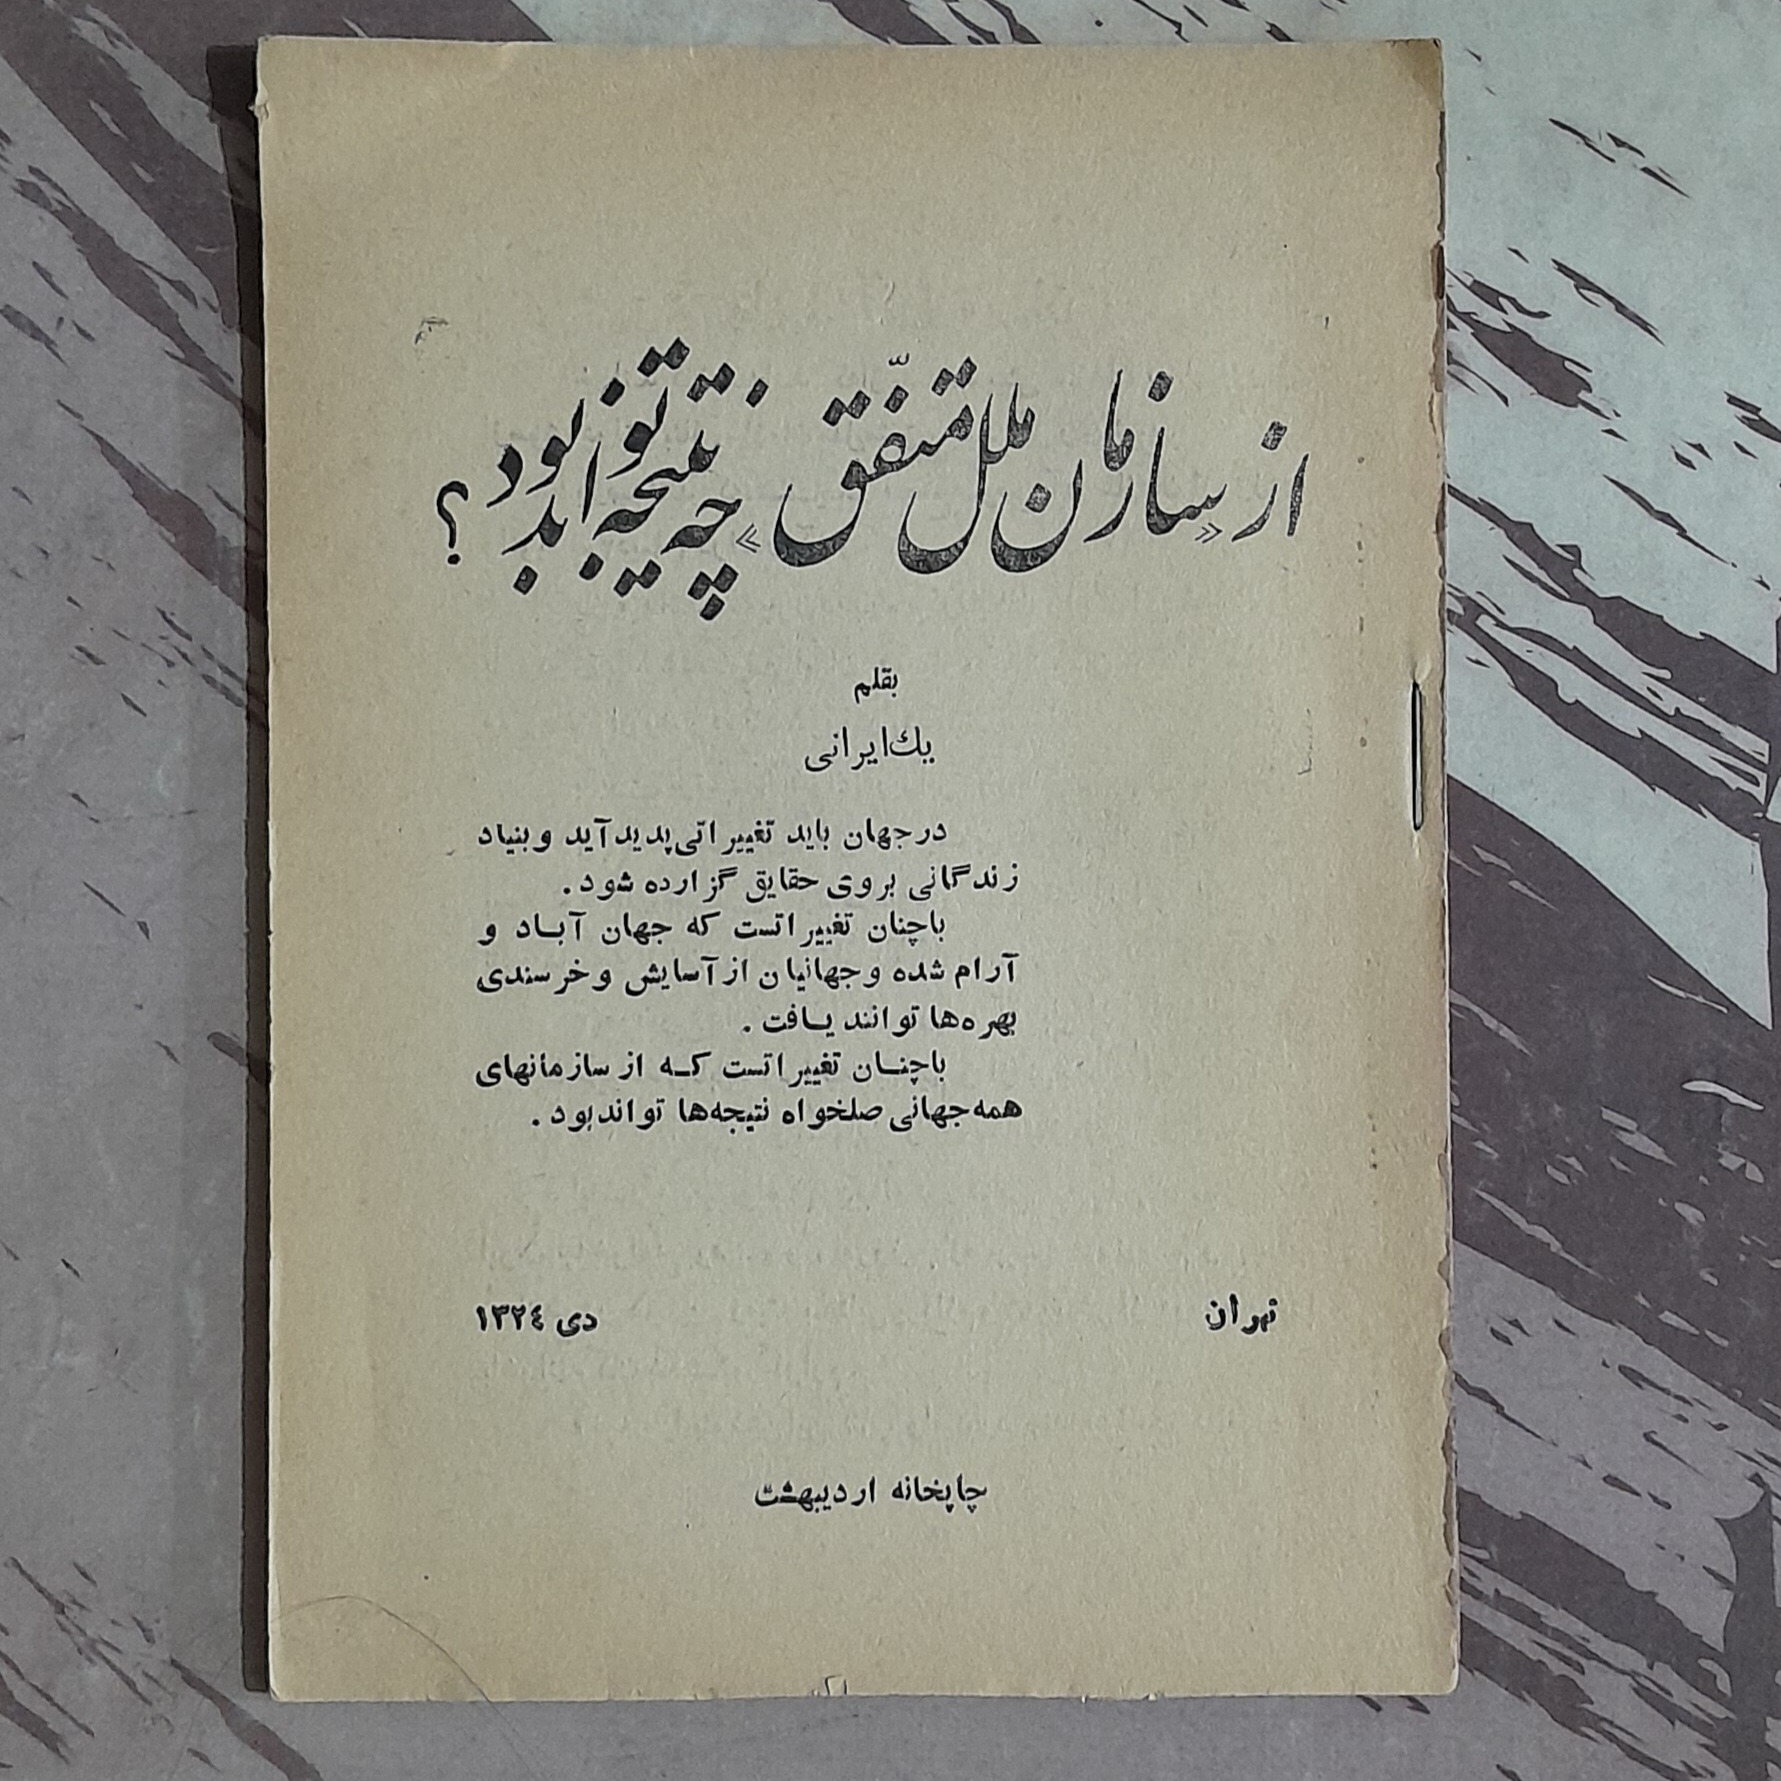 از «سازمان ملل متفّق» چه نتیجه تواند بود؟
بقلم
یك ایرانی
در جهان باید تغییراتی پدید آید و بنیاد
زندگانی بروی حقایق گزارده شود.
با چنان تغییراتست که جهان آباد و
آرام شده و جهانیان از آسایش و خرسندی
بهره‌ها توانند یافت.
با چنان تغییراتست که از سازمانهای
همه جهانی صلخواه نتیجه‌ها تواند بود.
تهران
دی ١٣٢٤
چاپخانه اردیبهشت